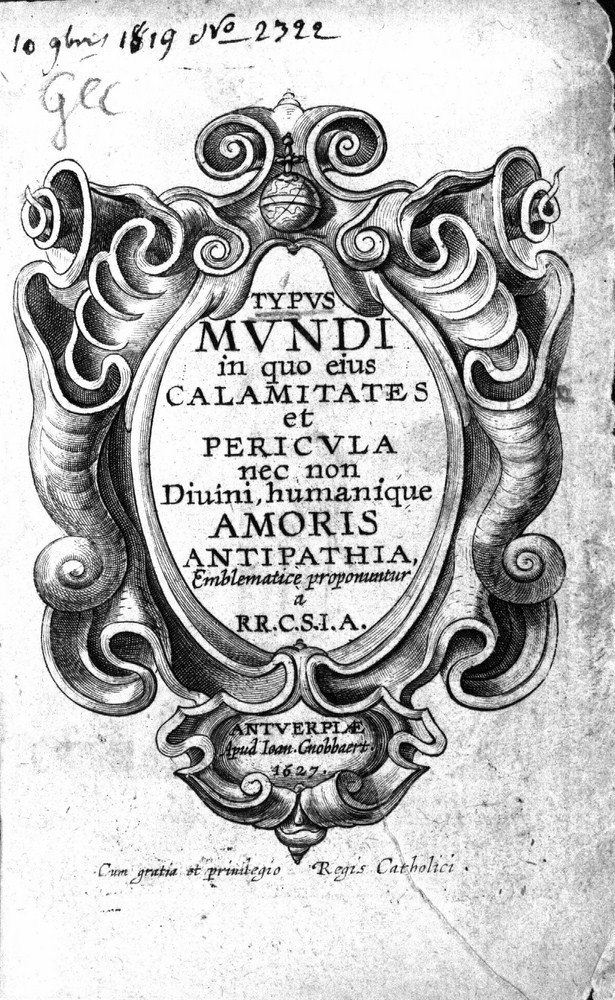 10 9bris 1819 No 2322
Gec
TYPVS
MVNDI
in quo eius
CALAMITATES
et
PERICVLA
nec non
Diuini, humanique
AMORIS
ANTIPATHIA,
Emblematice proponuntur
à
RR.C.S.I.A.
ANTVERPIÆ
Apud Ioan. Cnobbaert.
1627.
Cum gratia et priuilegio Regis Catholici.